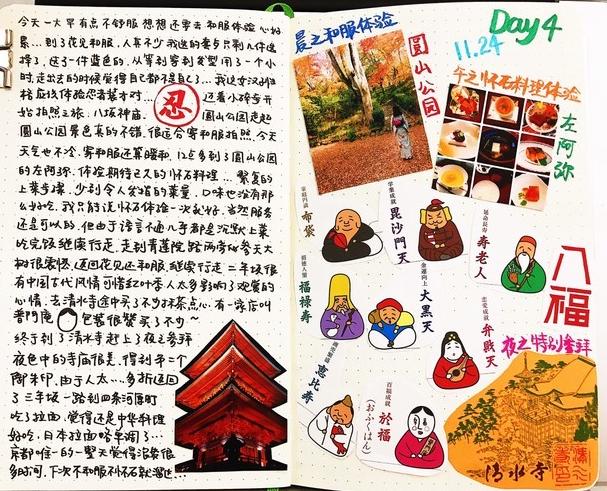 今天一大早有点不舒服 想想还要去和服体验 心好
累…到了花见和服,人真不少 我选的套卢只剩几件选
择了,选了一件蓝色的,从穿到穿到发型 用了一个小
时 走出去的时候觉得自己都不是自己了…我这女汉子性
格应该体验忍者装才对… 迈着小碎步开
忍
始拍照之旅.八坂神庙. 圆山公园走起
圆山公园景色真的不错.很适合穿和服拍照.今天
天气也不冷.穿和服还算暖和 12点多到了圆山公园
的左阿弥.体验期待已久的怀石料理…繁复的
上菜步骤.少到令人发指的菜量.口味也没有那
么好吃.我只能说怀石体验一次就好.当然服务
还是可以的.但由于语言不通 几乎都是沉默上菜
吃完饭继续行走.走到青莲院 路两旁的参天大
树很震憾.返回花见还和服.继续行走 二年坂很
有中国古代风情 可惜红叶季人太多影响了观赏的
心情.去清水寺途中买了不少抹茶点心.有一家店叫
普门庵 包装很赞 买了不少~
终于到了清水寺赶上了夜之参拜
夜色中的寺庙很美.得到第二个
御朱印.由于人太…多折返回
了三年坂一路到四条河原町
吃了拉面.觉得还是中华料理
好吃.日本拉面略单调了…
京都唯一的一整天觉得浪费很
多时间.下次不和服不怀石就溜达…
Day 4
11.24
晨之和服体验
圓山公园
午之怀石料理体验
左阿弥
家庭円満
布袋
学業成就
毘沙門天
延命長寿
寿老人
八福
招徳人望
福禄寿
金運向上
大黒天
恋愛成就
弁戝天
夜之特别参拜
商売繁盛
恵比寿
百福成就
於福
(おふくはん)
清水寺